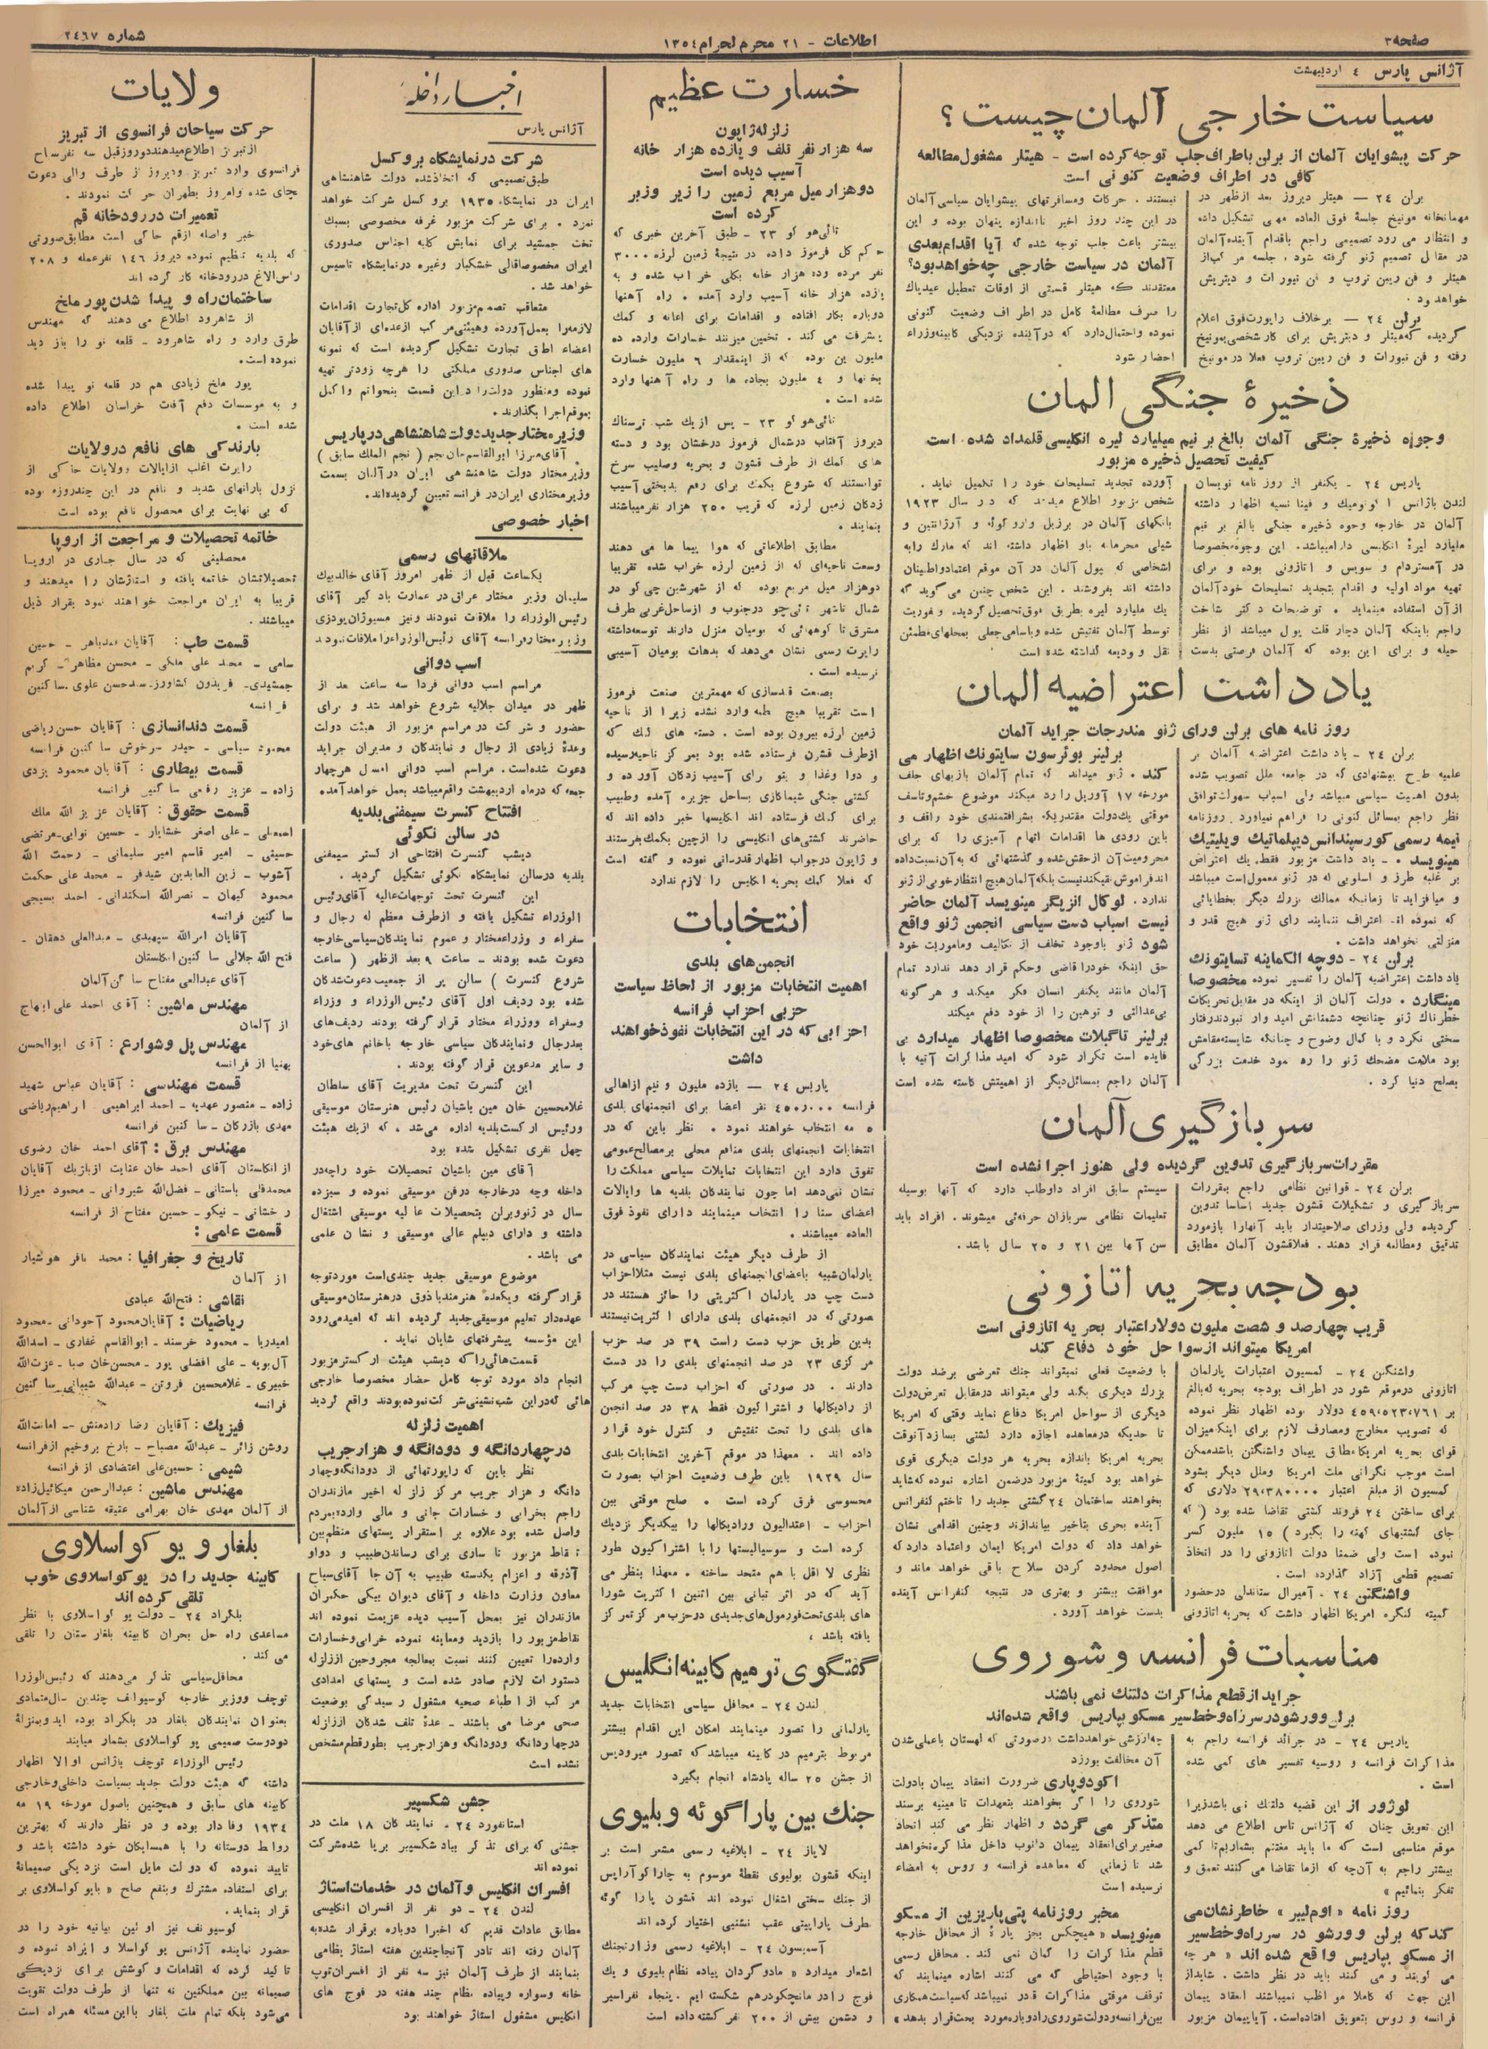 صفحه ۳
اطلاعات - ۲۱ محرم الحرام ۱۳۵٤
شماره ۲٤٦۷
آژانس پارس ٤ اردیبهشت
سیاست خارجی آلمان چیست ؟
حرکت پیشوایان آلمان از برلن باطراف جلب توجه کرده است - هیتلر مشغول مطالعه
کافی در اطراف وضعیت کنونی است
برلن ۲٤ — هیتلر دیروز بعد ازظهر در
مهمانخانه مونیخ جلسهٔ فوق العاده مهمی تشکیل داده
و انتظار می رود تصمیمی راجع باقدام آیندهٔ آلمان
در مقابل تصمیم ژنو گرفته شود . جلسه مرکب از
هیتلر و فن ریبن تروپ و فن نیورات و دیتریش
خواهد بود .
برلن ۲٤ — برخلاف راپورت فوق اعلام
گردیده که هیتلر و دیتریش برای کار شخصی بمونیخ
رفته و فن نیورات و فن ریبن تروپ فعلا در مونیخ
نیستند . حرکات ومسافرتهای پیشوایان سیاسی آلمان
در این چند روز اخیر تااندازه پنهان بوده و این
بیشتر باعث جلب توجه شده که آیا اقدام بعدی
آلمان در سیاست خارجی چه خواهد بود؟
معتقدند که هیتلر قسمتی از اوقات تعطیل عیدپاک
را صرف مطالعهٔ کامل در اطراف وضعیت کنونی
نموده واحتمال دارد که در آینده نزدیکی کابینه وزراء
احضار شود
ذخیرهٔ جنگی المان
وجوه ذخیرهٔ جنگی آلمان بالغ بر نیم میلیارد لیره انگلیسی قلمداد شده است
کیفیت تحصیل ذخیره مزبور
پاریس ۲٤ - یکنفر از روز نامه نویسان
لندن بآژانس اکونومیک و فینانسیه اظهار داشته
آلمان در خارجه وجوه ذخیره جنگی بالغ بر نیم
ملیارد لیرهٔ انگلیسی دارا میباشد. این وجوه مخصوصا
در آمستردام و سویس و اتازونی بوده و برای
تهیه مواد اولیه و اقدام بتجدید تسلیحات خود آلمان
از آن استفاده مینماید . توضیحات دکتر شاخت
راجع باینکه آلمان دچار قلت پول میباشد از نظر
حیله و برای این بوده که آلمان فرصتی بدست
آورده تجدید تسلیحات خود را تکمیل نماید .
شخص مزبور اطلاع میدهد که در سال ۱۹۲۳
بانکهای آلمان در برزیل و اروگوئه و آرژانتین و
شیلی محرمانه باو اظهار داشته اند که مارک را به
اشخاصی که پول آلمان در آن موقع اعتماد واطمینان
داشته اند بفروشند . این شخص چنین می گوید که
یک ملیارد لیره بطریق فوق تحصیل گردیده و فوریت
توسط آلمان تفتیش شده و باسامی جعلی بمحلهای مطمئن
نقل و ودیعه گذاشته شده است
یادداشت اعتراضیه المان
روز نامه های برلن ورای ژنو مندرجات جراید آلمان
برلن ۲٤ - یاد داشت اعتراضیه آلمان بر
علیه طرح پیشنهادی که در جامعه ملل تصویب شده
بدون اهمیت سیاسی میباشد ولی اسباب سهولت توافق
نظر راجع بمسائل کنونی را فراهم نمیاورد . روزنامه
نیمه رسمی کورسپندانس دیپلماتیک و پلیتیک
مینویسد . - یاد داشت مزبور فقط یک اعتراض
بر علیه طرز و اسلوبی که در ژنو معمول است میباشد
و میافزاید تا زمانیکه ممالک بزرک دیگر بخطایائی
که نموده اند اعتراف ننمایند رای ژنو هیچ قدر و
منزلتی نخواهد داشت .
برلن ۲٤ - دوچه الکماینه تسایتونک
یاد داشت اعتراضیه آلمان را تفسیر نموده مخصوصا
مینگارد . دولت آلمان از اینکه در مقابل تحریکات
خطرناک ژنو چنانچه دشمنانش امید وار نبودند رفتار
سختی نکرد و با کمال وضوح و چنانکه شایسته مقامش
بود ملامت مضحک ژنو را رد نمود خدمت بزرگی
بصلح دنیا کرد .
برلینر بوئرسون سایتونک اظهار می
کند . ژنو میداند که تمام آلمان بازیهای جلف
مورخه ۱۷ آوریل را رد میکند موضوع خشم وتاسف
موقتی یک دولت مقتدریکه بشرافتمندی خود واقف و
باین زودی ها اقدامات اتهام آمیزی را که برای
محرومیت آن از حقش شده و گذشتهائی که به آن نسبت داده
اند فراموش نمیکند نیست بلکه آلمان هیچ انتظار خوبی از ژنو
ندارد . لوکال انزیگر مینویسد آلمان حاضر
نیست اسباب دست سیاسی انجمن ژنو واقع
شود ژنو باوجود تخلف از تکالیف وماموریت خود
حق اینکه خود را قاضی وحکم قرار دهد ندارد تمام
آلمان مانند یکنفر انسان فکر میکند و هر گونه
بی عدالتی و توهین را از خود دفع میکند
برلینر تاگبلات مخصوصا اظهار میدارد بی
فایده است تکرار شود که امید مذاکرات آتیه با
آلمان راجع بمسائل دیگر از اهمیتش کاسته شده است
سربازگیری آلمان
مقررات سربازگیری تدوین گردیده ولی هنوز اجرا نشده است
برلن ۲٤ - قوانین نظامی راجع بمقررات
سربازگیری و تشکیلات قشون جدید اساسا تدوین
گردیده ولی وزرای صلاحیتدار باید آنهارا بازمورد
تدقیق ومطالعه قرار دهند . فعلا قشون آلمان مطابق
سیستم سابق افراد داوطلب دارد که آنها بوسیله
تعلیمات نظامی سربازان حرفه ئی میشوند . افراد باید
سن آنها بین ۲۱ و ۲۵ سال باشد .
بودجه بحریه اتازونی
قریب چهارصد و شصت ملیون دولار اعتبار بحریه اتازونی است
امریکا میتواند از سواحل خود دفاع کند
واشنگتن ۲٤ - کمسیون اعتبارات پارلمان
اتازونی در موقع شور در اطراف بودجه بحریه که بالغ
بر ٤۵۹،۵۲۳،۷٦۱ دولار بوده اظهار نظر نموده
که تصویب مخارج ومصارف لازم برای اینکه میزان
قوای بحریه امریکا مطابق پیمان واشنگتن باشد ممکن
است موجب نگرانی ملت امریکا وملل دیگر بشود
کمسیون از مبلغ اعتبار ۲۹،۳۸۰۰۰۰ دلاری که
برای ساختن ۲٤ فروند کشتی تقاضا شده بود ( که
جای کشتیهای کهنه را بگیرد ) ۱۵ ملیون کسر
نموده است ولی ضمنا دولت اتازونی را در اتخاذ
تصمیم قطعی آزاد گذارده است .
واشنگتن ۲٤ - آمیرال ستاندلی در حضور
کمیته کنگره امریکا اظهار داشت که بحریه اتازونی
با وضعیت فعلی نمیتواند جنک تعرضی برضد دولت
بزرک دیگری بکند ولی میتواند درمقابل تعرض دولت
دیگری از سواحل امریکا دفاع نماید وقتی که امریکا
تا حدیکه درمعاهده اجازه دارد کشتی بسازد آنوقت
بحریه امریکا باندازه بحریه هر دولت دیگری قوی
خواهد بود کمیتهٔ مزبور درضمن اشاره نموده که شاید
بخواهند ساختمان ۲٤ کشتی جدید را تا ختم کنفرانس
آینده بحری بتاخیر بیاندازند وچنین اقدامی نشان
خواهد داد که دولت امریکا ایمان واعتماد دارد که
اصول محدود کردن سلاح باقی خواهد ماند و
موافقت بیشتر و بهتری در نتیجه کنفرانس آینده
بدست خواهد آورد .
مناسبات فرانسه و شوروی
جراید از قطع مذاکرات دلتنک نمی باشند
برلن و ورشو در سر راه و خط سیر مسکو بپاریس واقع شده اند
پاریس ۲٤ - در جرائد فرانسه راجع به
مذاکرات فرانسه و روسیه تفسیر های کمی شده
است .
لوژور از این قضیه دلتنک نمی باشد زیرا
این تعویق چنان که آژانس تاس اطلاع می دهد
موقع مناسبی است که ما باید مغتنم بشماریم تا کمی
بیشتر راجع به آن چه که از ما تقاضا می کنند تعمق و
تفکر بنمائیم »
روز نامه « اوم لیبر » خاطرنشان می
کند که برلن و ورشو در سر راه و خط سیر
از مسکو بپاریس واقع شده اند « هر چه
می گویند و می کنند باید در نظر داشت . شاید از
این جهت که کاملا مواظب نمیباشند انعقاد پیمان
فرانسه و روس بتعویق افتاده است. آیا پیمان مزبور
چه ارزشی خواهد داشت : در صورتی که لهستان باعملی شدن
آن مخالفت بورزد
اکو دوپاری ضرورت انعقاد پیمان بادولت
شوروی را اگر بخواهند بتعهدات تامینیه برسند
متذکر می گردد و اظهار نظر می کند اتحاد
صغیر برای انعقاد پیمان دانوب داخل مذاکره نخواهد
شد تا زمانی که معاهده فرانسه و روس به امضاء
نرسیده است
مخبر روزنامه پتی پاریزین از مسکو
مینویسد « هیچکس بجز پارهٔ از محافل خارجه
قطع مذاکرات را گمان نمی کند . محافل رسمی
با وجود احتیاطی که می کنند اشاره مینمایند که
توقف موقتی مذاکرات قادر نمیباشد که سیاست همکاری
بین فرانسه و دولت شوروی را دوباره مورد بحث قرار بدهد »
خسارت عظیم
زلزله ژاپون
سه هزار نفر تلف و یازده هزار خانه
آسیب دیده است
دو هزار میل مربع زمین را زیر وزبر
کرده است
تائی هو کو ۲۳ - طبق آخرین خبری که
حاکم کل فرموز داده در نتیجهٔ زمین لرزه ۳۰۰۰
نفر مرده و ده هزار خانه بکلی خراب شده و به
یازده هزار خانه آسیب وارد آمده . راه آهنها
دوباره بکار افتاده و اقدامات برای اعانه و کمک
پیشرفت می کند . تخمین میزنند خسارات وارده ده
ملیون ین بوده که از اینمقدار ٦ ملیون خسارت
بخانها و ٤ ملیون بجاده ها و راه آهنها وارد
شده است .
تائی هو کو ۲۳ - پس از یک شب ترسناک
دیروز آفتاب در شمال فرموز درخشان بود و دسته
های کمک از طرف قشون و بحریه وصلیب سرخ
توانستند که شروع بکمک برای رفع بدبختی آسیب
زدکان زمین لرزه که قریب ۲۵۰ هزار نفر میباشند
بنمایند .
مطابق اطلاعاتی که هوا پیما ها می دهند
وسعت ناحیه ای که از زمین لرزه خراب شده تقریبا
دو هزار میل مربع بوده که از شهرشین چی کو در
شمال تا شهر تائی چو در جنوب و از ساحل غربی طرف
مشرق تا کوههائی که بومیان منزل دارند توسعه داشته
راپرت رسمی نشان میدهد که بدهات بومیان آسیبی
نرسیده است .
بصنعت قندسازی که مهمترین صنعت فرموز
است تقریبا هیچ لطمه وارد نشده زیرا از ناحیه
زمین لرزه بیرون بوده است . دسته های کمک که
از طرف قشون فرستاده شده بود بمرکز ناحیه رسیده
و دوا وغذا و پتو برای آسیب زدکان آورده و
کشتی جنگی شیماکازی بساحل جزیره آمده وطبیب
برای کمک فرستاده اند انگلیسها خبر داده اند که
حاضرند کشتی های انگلیسی را از چین بکمک بفرستند
و ژاپون در جواب اظهار قدردانی نموده و گفته است
که فعلا کمک بحریه انگلیس را لازم ندارد
انتخابات
انجمن های بلدی
اهمیت انتخابات مزبور از لحاظ سیاست
حزبی احزاب فرانسه
احزابی که در این انتخابات نفوذ خواهند
داشت
پاریس ۲٤ — یازده ملیون و نیم از اهالی
فرانسه ٤۵۰،۰۰۰ نفر اعضا برای انجمنهای بلدی
۵ مه انتخاب خواهند نمود . نظر باین که در
انتخابات انجمنهای بلدی منافع محلی بر مصالح عمومی
تفوق دارد این انتخابات تمایلات سیاسی مملکت را
نشان نمی دهد اما چون نمایندکان بلدیه ها وایالات
اعضای سنا را انتخاب مینمایند دارای نفوذ فوق
العاده میباشند .
از طرف دیگر هیئت نمایندکان سیاسی در
پارلمان شبیه باعضای انجمنهای بلدی نیست مثلا احزاب
دست چپ در پارلمان اکثریتی را حائز هستند در
صورتی که در انجمنهای بلدی دارای اکثریت نیستند
بدین طریق حزب دست راست ۳۹ در صد حزب
مرکزی ۲۳ در صد انجمنهای بلدی را در دست
دارند . در صورتی که احزاب دست چپ مرکب
از رادیکالها و اشتراکیون فقط ۳۸ در صد انجمن
های بلدی را تحت تفتیش و کنترل خود قرار
داده اند . معهذا در موقع آخرین انتخابات بلدی
سال ۱۹۲۹ باین طرف وضعیت احزاب بصورت
محسوسی فرق کرده است . صلح موقتی بین
احزاب - اعتدالیون ورادیکالها را بیکدیگر نزدیک
کرده است و سوسیالیستها را با اشتراکیون طرد
نظری لا اقل با هم متحد ساخته . معهذا بنظر می
آید که در اثر تبانی بین اثنین اکثریت شورا
های بلدی تحت فورمول های جدیدی درحزب مرکز تمرکز
یافته باشد .
گفتگوی ترمیم کابینه انگلیس
لندن ۲٤ - محافل سیاسی انتخابات جدید
پارلمانی را تصور مینمایند امکان این اقدام بیشتر
مربوط بترمیم در کابینه میباشد که تصور میرود پس
از جشن ۲۵ ساله پادشاه انجام بگیرد
جنک بین پاراگوئه وبلیوی
لاپاز ۲٤ - ابلاغیه رسمی مشعر است بر
اینکه قشون بولیوی نقطهٔ موسوم به چاراکوآرایس
از جنک سختی اشغال نموده اند قشون پارا گوئه
طرف پاراپیتی عقب نشینی اختیار کرده اند
آسمپسون ۲٤ - ابلاغیه رسمی وزارتجنک
اشعار میدارد « مادوگردان پیاده نظام بلیوی و یک
فوج را در مانچکو درهم شکسته ایم . پنجاه نفر اسیر
و دشمن بیش از ۲۰۰ نفر کشته داده است
اخبار داخله
آژانس پارس
شرکت در نمایشگاه بروکسل
طبق تصمیمی که اتخاذ شده دولت شاهنشاهی
ایران در نمایشگاه ۱۹۳۵ بروکسل شرکت خواهد
نمود . برای شرکت مزبور غرفه مخصوصی بسبک
تخت جمشید برای نمایش کلیه اجناس صدوری
ایران مخصوصا قالی خشکبار وغیره درنمایشگاه تاسیس
خواهد شد .
متعاقب تصمیم مزبور اداره کل تجارت اقدامات
لازمه را بعمل آورده وهیئتی مرکب از عده ای از آقایان
اعضاء اطاق تجارت تشکیل گردیده است که نمونه
های اجناس صدوری مملکتی را هرچه زودتر تهیه
نموده ومنظور دولت را در این قسمت بنحو اتم واکمل
بموقع اجرا بگذارند .
وزیر مختار جدید دولت شاهنشاهی در پاریس
آقای میرزا ابوالقاسم خان نجم ( نجم الملک سابق )
وزیر مختار دولت شاهنشاهی ایران در آلمان بسمت
وزیر مختاری ایران در فرانسه تعیین گردیده اند .
اخبار خصوصی
ملاقاتهای رسمی
یکساعت قبل از ظهر امروز آقای خالد بیک
سلیمان وزیر مختار عراق در عمارت باد گیر آقای
رئیس الوزراء را ملاقات نمودند ونیز مسیو ژان پوزدی
وزیر مختار فرانسه آقای رئیس الوزراء را ملاقات نمودند
اسب دوانی
مراسم اسب دوانی فردا سه ساعت بعد از
ظهر در میدان جلالیه شروع خواهد شد و برای
حضور و شرکت در مراسم مزبور از هیئت دولت
وعدهٔ زیادی از رجال و نمایندکان و مدیران جراید
دعوت شده است. مراسم اسب دوانی امسال هر چهار
جمعه که در ماه اردیبهشت واقع میباشد بعمل خواهد آمد
افتتاح کنسرت سیمفنی بلدیه
در سالن نکوئی
دیشب کنسرت افتتاحی ارکستر سیمفنی
بلدیه در سالن نمایشگاه نکوئی تشکیل گردید .
این کنسرت تحت توجهات عالیه آقای رئیس
الوزراء تشکیل یافته و از طرف معظم له رجال و
سفراء و وزراء مختار و عموم نمایندکان سیاسی خارجه
دعوت شده بودند - ساعت ۹ بعد ازظهر ( ساعت
شروع کنسرت ) سالن پر از جمعیت دعوت شدکان
شده بود ردیف اول آقای رئیس الوزراء و وزراء
وسفراء ووزراء مختار قرار گرفته بودند ردیف های
بعد رجال ونمایندکان سیاسی خارجه باخانم های خود
و سایر مدعوین قرار گرفته بودند .
این کنسرت تحت مدیریت آقای سلطان
غلامحسین خان مین باشیان رئیس هنرستان موسیقی
ورئیس ارکست بلدیه اداره می شد . که از یک هیئت
چهل نفری تشکیل شده بود
آقای مین باشیان تحصیلات خود را چه در
داخله وچه در خارجه در فن موسیقی نموده و سیزده
سال در ژنو و برلن بتحصیلات عالیه موسیقی اشتغال
داشته و دارای دیپلم عالی موسیقی و نشان علمی
می باشد .
موضوع موسیقی جدید چندی است مورد توجه
قرار گرفته و یکعده هنرمند باذوق در هنرستان موسیقی
عهده دار تعلیم موسیقی جدید گردیده اند که امید میرود
این مؤسسه پیشرفتهای شایان نماید .
قسمت هائی را که دیشب هیئت ارکستر مزبور
انجام داد مورد توجه کامل حضار مخصوصا خارجی
هائی که در این شب نشینی شرکت نموده بودند واقع گردید
اهمیت زلزله
در چهار دانگه و دودانگه و هزار جریب
نظر باین که راپورتهائی از دودانگه و چهار
دانگه و هزار جریب مرکز زلزله اخیر مازندران
راجع بخرابی و خسارات جانی و مالی وارده بمردم
واصل شده بود علاوه بر استقرار پستهای منظم بین
نقاط مزبور تا ساری برای رساندن طبیب و دوا و
آذوقه و اعزام یکدسته طبیب به آن جا آقای سیاح
معاون وزارت داخله و آقای دیوان بیکی حکمران
مازندران نیز بمحل آسیب دیده عزیمت نموده اند
نقاط مزبور را بازدید ومعاینه نموده خرابی وخسارات
وارده را تعیین کنند نسبت بمعالجه مجروحین از زلزله
دستورات لازم صادر شده است و پستهای امدادی
مرکب از اطباء صحیه مشغول رسیدگی بوضعیت
صحی مرضا می باشند - عدهٔ تلف شدکان از زلزله
در چهار دانگه و دودانگه و هزار جریب بطور قطع مشخص
نشده است
جشن شکسپیر
استانفورد ۲٤ - نمایندکان ۱۸ ملت در
جشنی که برای تذکر بیاد شکسپیر برپا شده شرکت
نموده اند
افسران انگلیس و آلمان در خدمات استاژ
لندن ۲٤ - دو نفر از افسران انگلیسی
مطابق عادات قدیم که اخیرا دوباره برقرار شده به
آلمان رفته اند تا در آنجا چندین هفته استاژ بنظامی
بنمایند از طرف آلمان نیز سه نفر از افسران توپ
خانه وسواره وپیاده نظام چند هفته در فوج های
انگلیس مشغول استاژ خواهند بود
ولایات
حرکت سیاحان فرانسوی از تبریز
از تبریز اطلاع میدهند دو روز قبل سه نفر سیاح
فرانسوی وارد تبریز ودیروز از طرف والی دعوت
بچای شده وامروز بطهران حرکت نمودند .
تعمیرات در رودخانه قم
خبر واصله از قم حاکی است مطابق صورتی
که بلدیه تنظیم نموده دیروز ۱٤٦ نفر عمله و ۲۰۸
راس الاغ در رودخانه کار کرده اند
ساختمان راه و پیدا شدن پور ملخ
از شاهرود اطلاع می دهند که مهندس
طرق وارد و راه شاهرود - قلعه نو را باز دید
نموده است .
پور ملخ زیادی هم در قلعه نو پیدا شده
و به موسسات دفع آفات خراسان اطلاع داده
شده است .
بارندگی های نافع در ولایات
راپرت اغلب از ایالات وولایات حاکی از
نزول بارانهای شدید و نافع در این چند روزه بوده
که بی نهایت برای محصول نافع بوده است
خاتمه تحصیلات و مراجعت از اروپا
محصلینی که در سال جاری در اروپا
تحصیلاتشان خاتمه یافته و استاژشان را میدهند و
قریبا به ایران مراجعت خواهند نمود بقرار ذیل
میباشند .
قسمت طب : آقایان محمد باهر - حسین
سامی - محمد علی ملکی - محسن مظاهر - کریم
جمشیدی - فریدون کشاورز - سید حسن علوی ساکنین
فرانسه
قسمت دندانسازی : آقایان حسن ریاضی
محمود سیاسی - حیدر سرخوش ساکنین فرانسه
قسمت بیطاری : آقایان محمود یزدی
زاده - عزیز رفعی ساکنین فرانسه
قسمت حقوق : آقایان عزیز الله ملک
اسمعیلی - علی اصغر خشایار - حسین نوابی - مرتضی
حسینی - امیر قاسم امیر سلیمانی - رحمت الله
آشوب - زین العابدین شیدفر - محمد علی حکمت
محمود کیهان - نصرالله اسکندانی - احمد بسیجی
ساکنین فرانسه
آقایان امر الله سپهبدی - عبدالعلی دهقان -
فتح الله جلالی ساکنین انگلستان
آقای عبدالعی مفتاح ساکن آلمان
مهندس ماشین : آقای احمد علی ابتهاج
از آلمان
مهندس پل وشوارع : آقای ابوالحسن
بهنیا از فرانسه
قسمت مهندسی : آقایان عباس شهید
زاده - منصور عهدیه - احمد ابراهیمی ابراهیم ریاضی
مهدی بازرگان - ساکنین فرانسه
مهندس برق : آقای احمد خان رضوی
از انگلستان آقای احمد خان عنایت از بلژیک آقایان
محمدقلی باستانی - فضل الله شیروانی - محمود میرزا
رخشانی - نیکو - حسین مفتاح از فرانسه
قسمت علمی :
تاریخ و جغرافیا : محمد باقر هوشیار
از آلمان
نقاشی : فتح الله عبادی
ریاضیات : آقایان محمود آخودانی - محمود
امیدنیا - محمود خرسند - ابوالقاسم غفاری - اسدالله
آل بویه - علی افضلی پور - محسن خان صبا - عزت الله
خبیری - غلامحسین فروتن - عبدالله شیبانی - ساکنین
فرانسه
فیزیک : آقایان رضا رادمنش - امانت الله
روشن زائر - عبدالله مصباح - یارخ بروخیم از فرانسه
شیمی : حسین علی اعتضادی از فرانسه
مهندس ماشین : عبدالرحمن میکائیل زاده
از آلمان مهدی خان بهرامی عتیقه شناسی از آلمان
بلغار و یوکواسلاوی
کابینه جدید را در یوکواسلاوی خوب
تلقی کرده اند
بلکراد ۲٤ - دولت یوکواسلاوی با نظر
مساعدی راه حل بحران کابینه بلغارستان را تلقی
می کند .
محافل سیاسی تذکر می دهند که رئیس الوزرا
توچف ووزیر خارجه کوسیوانف چندین سال متمادی
بعنوان نمایندکان بلغار در بلکراد بوده اند و بمنزلهٔ
دو دوست صمیمی یوکواسلاوی بشمار میایند
رئیس الوزراء توچف بآژانس اوالا اظهار
داشته که هیئت دولت جدید بسیاست داخلی وخارجی
کابینه های سابق و همچنین باصول مورخه ۱۹ مه
۱۹۳٤ وفادار بوده و در نظر دارند که بهترین
روابط دوستانه را با همسایکان خود داشته باشد و
تایید نموده که دولت مایل است نزدیکی صمیمانهٔ
برای استفاده مشترک وبنفع صلح « با یوکواسلاوی بر
قرار بنماید .
کوسیونف نیز اولین بیانیه خود را در
حضور نماینده آژانس یوکواسلا و ایراد نموده و
تاکید کرده که اقدامات و کوشش برای نزدیکی
صمیمانه بین مملکتین نه تنها از طرف دولت تقویت
می شود بلکه تمام ملت بلغار با این مسئله همراه است